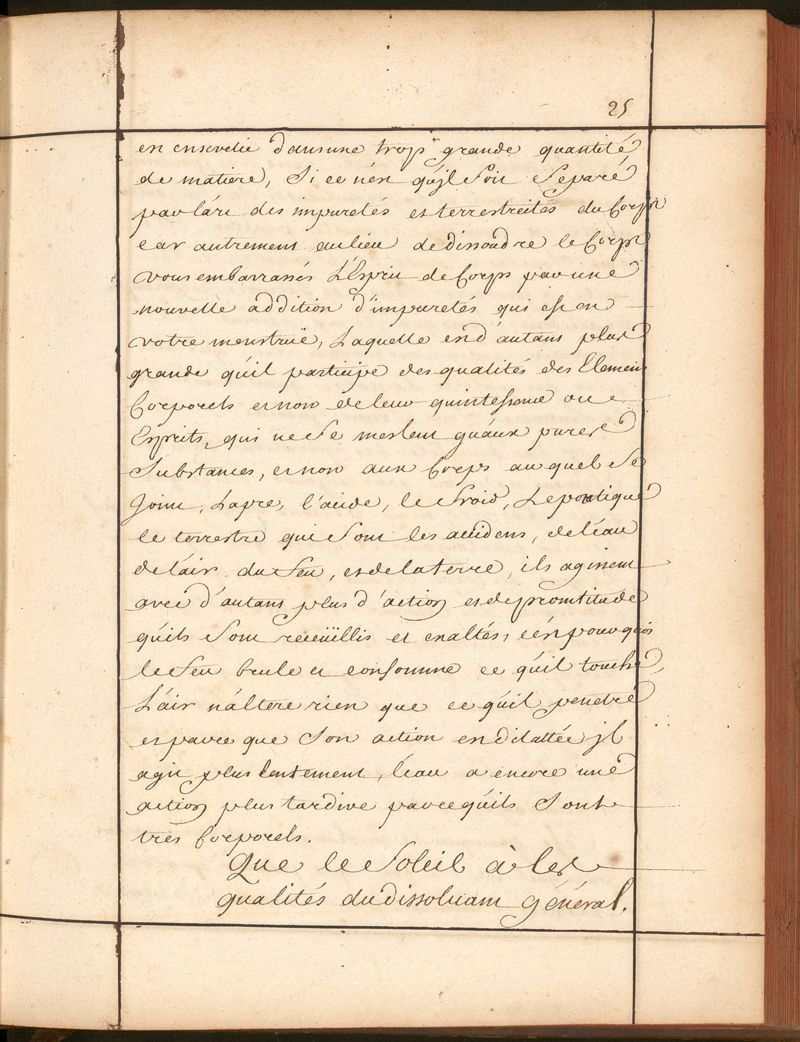 25
en ensevelie dansune trop grande quantité
de matiere, si ce n'est qu'jl soit separé
par l'art des impuretés et terrestreités du Corps
car autrement aulieu de dissoudre le Corps
vous embarrassés L'Esprit de Corps par une
nouvelle addition d'impuretés qui est en
votre menstruë, Laquelle est d'autans plus
grande qu'il participe des qualités des Elemens
Corporels et non de leur quintessence ou
Esprits, qui ne se meslent qu'aux pures
Substances, et non aux Corps auquel se
Joint, Lapre, l'acide, le froid, Le pontique
le terrestre qui sont les accidens, de l'eau
de l'air, du feu, et de la terre, ils agissent
avec d'autans plus d'action et de promtitude
qu'ils sont receüillis et exaltés, c'est pourquoi
le feu brule et consomme ce qu'il touche,
L'air n'altere rien que ce qu'il pendré
et parce que son action est dilattée jl
agit plus lentement, l'eau a encore une
action plus tardive parcequ'ils sont
tres Corporels.
Que le Soleil à les
qualités du dissolvant général.